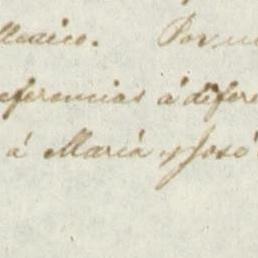 Medico. Por
eferencias á difere
á Maria y José